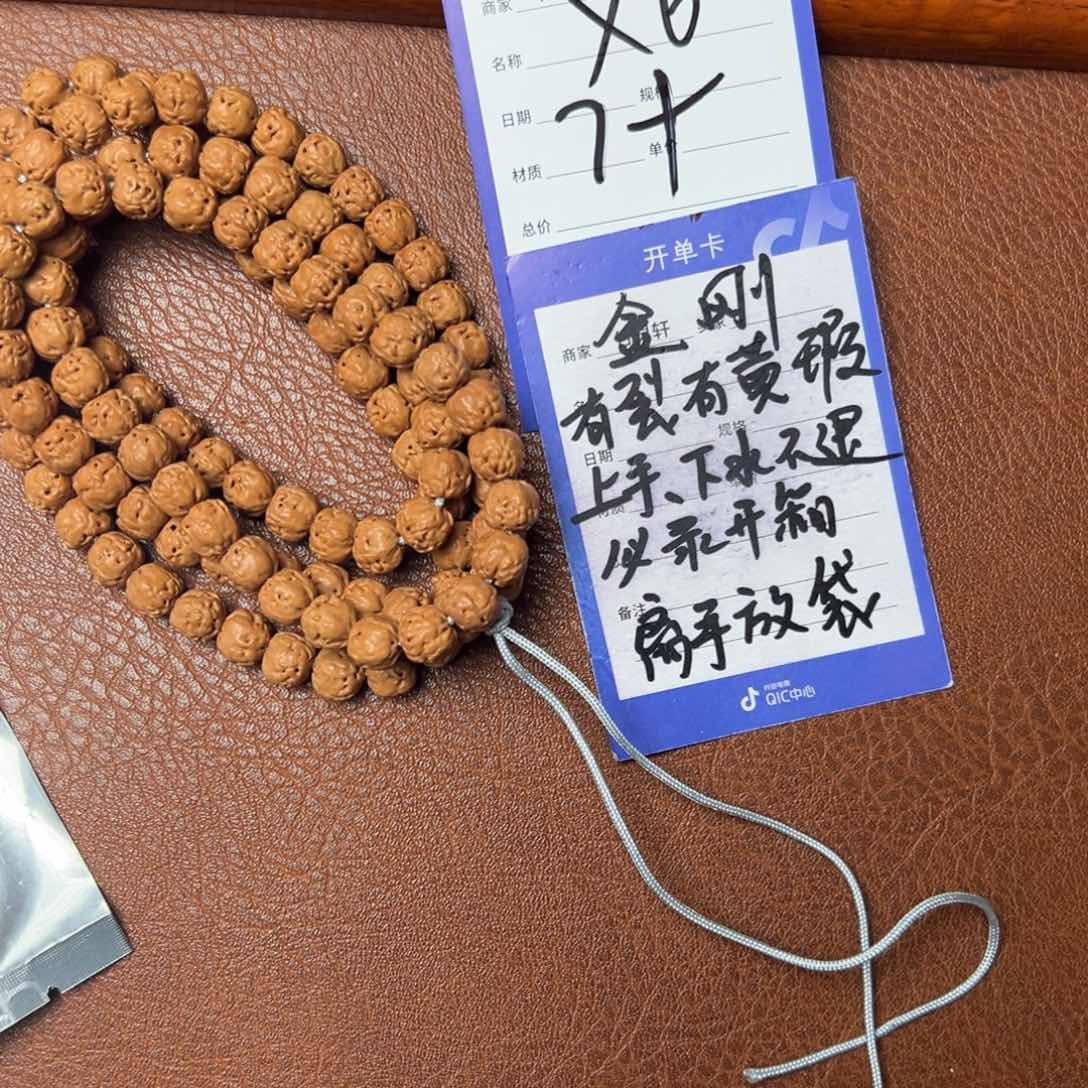 商家
X6
名称
日期 规格
7十
材质 单价
总价
开单卡
金刚
商家 轩
有裂有黄瑕
日期 规格
上手、下水不退
材质
必录开箱
备注
离手放袋
QIC中心